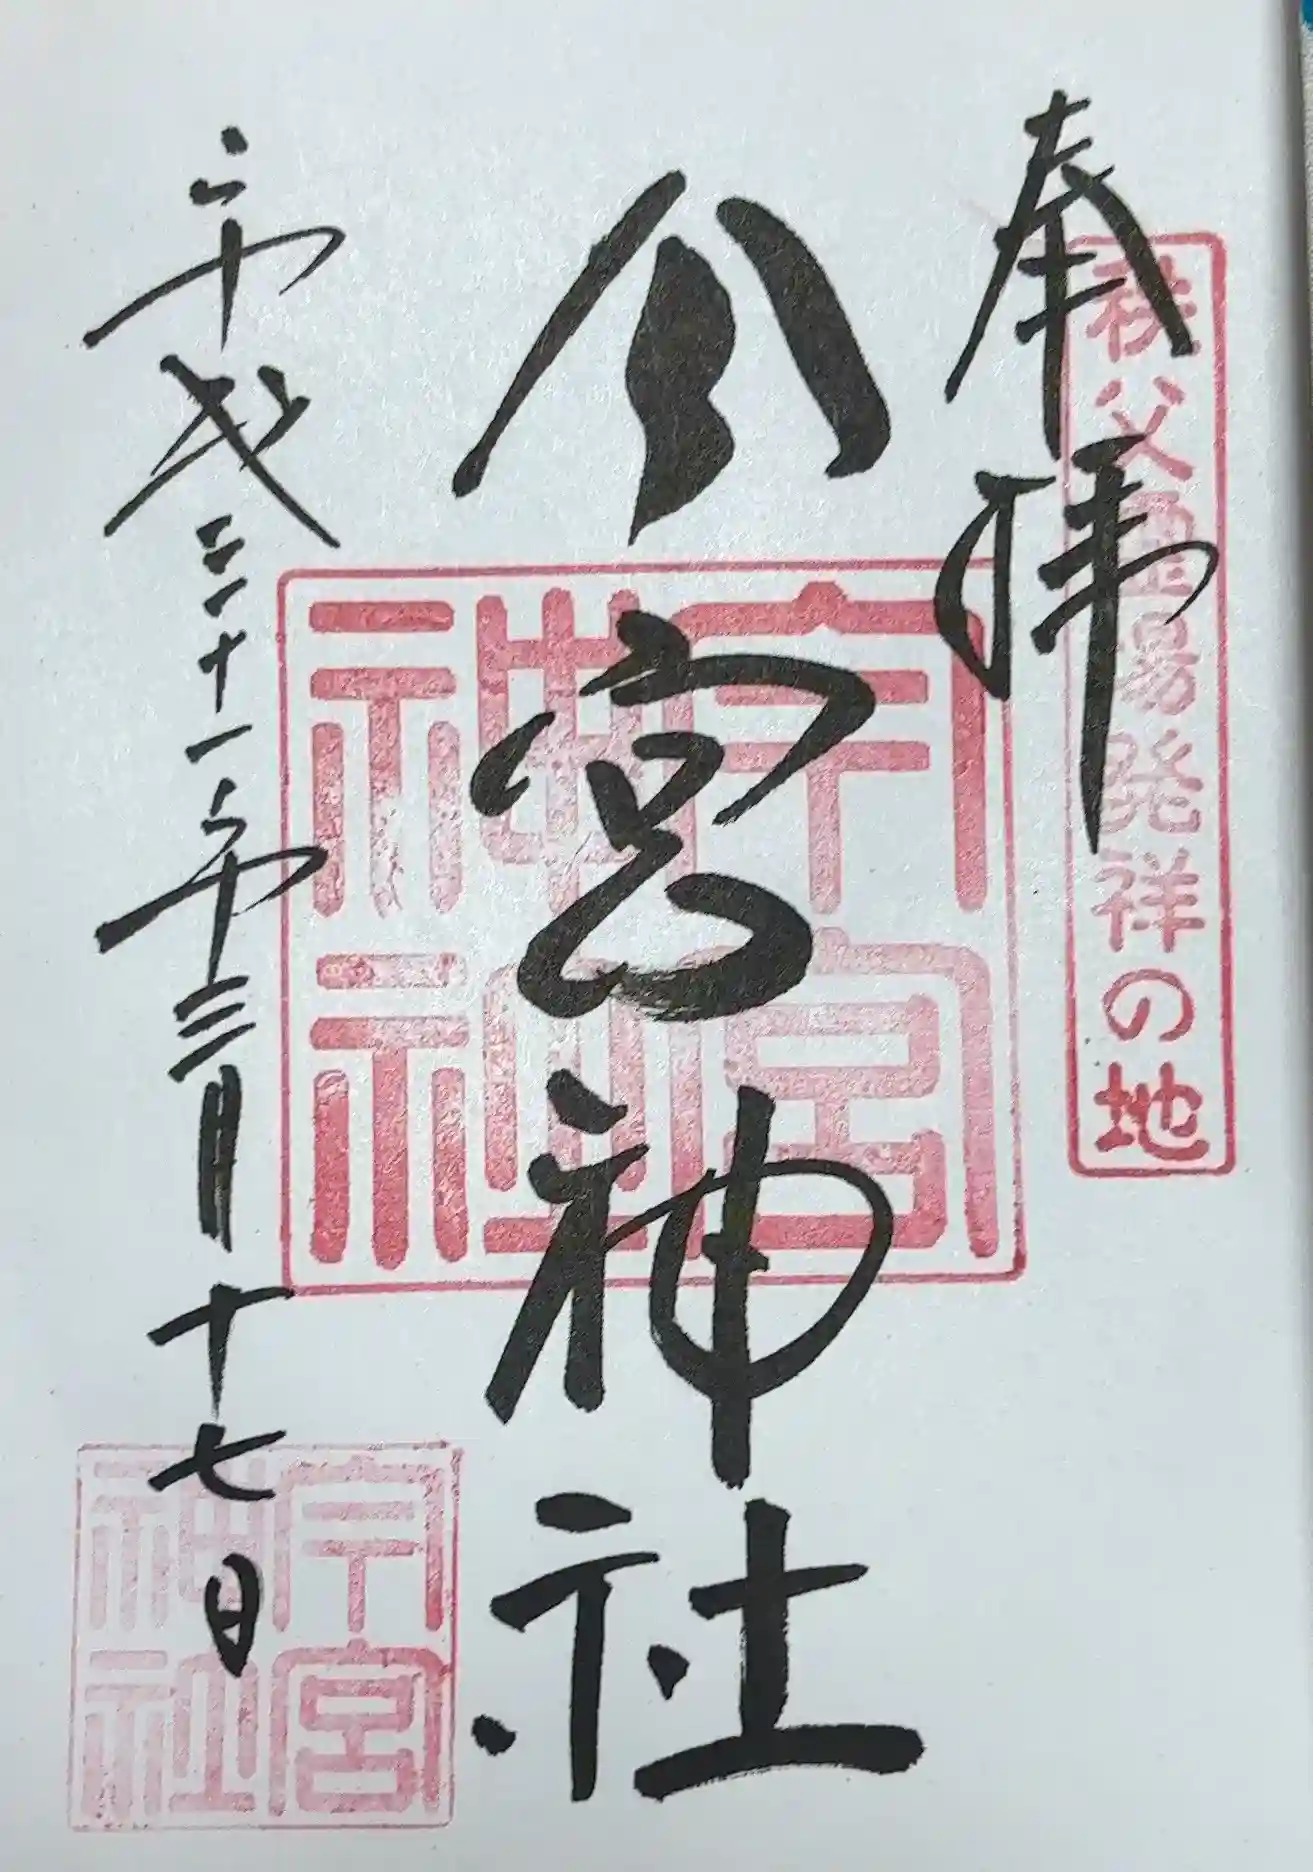 奉拝
秩父霊場発祥の地
今宮神社
今宮
神社
平成三十一年三月十七日
今宮
神社